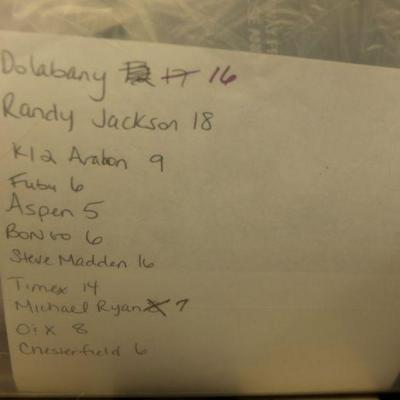 Dolabany 17 16
Randy Jackson 18
K12 Arabon 9
Fubu 6
Aspen 5
Bongo 6
Steve Madden 16
Timex 14
Michael Ryan 7
Oix 8
Chesterfield 6